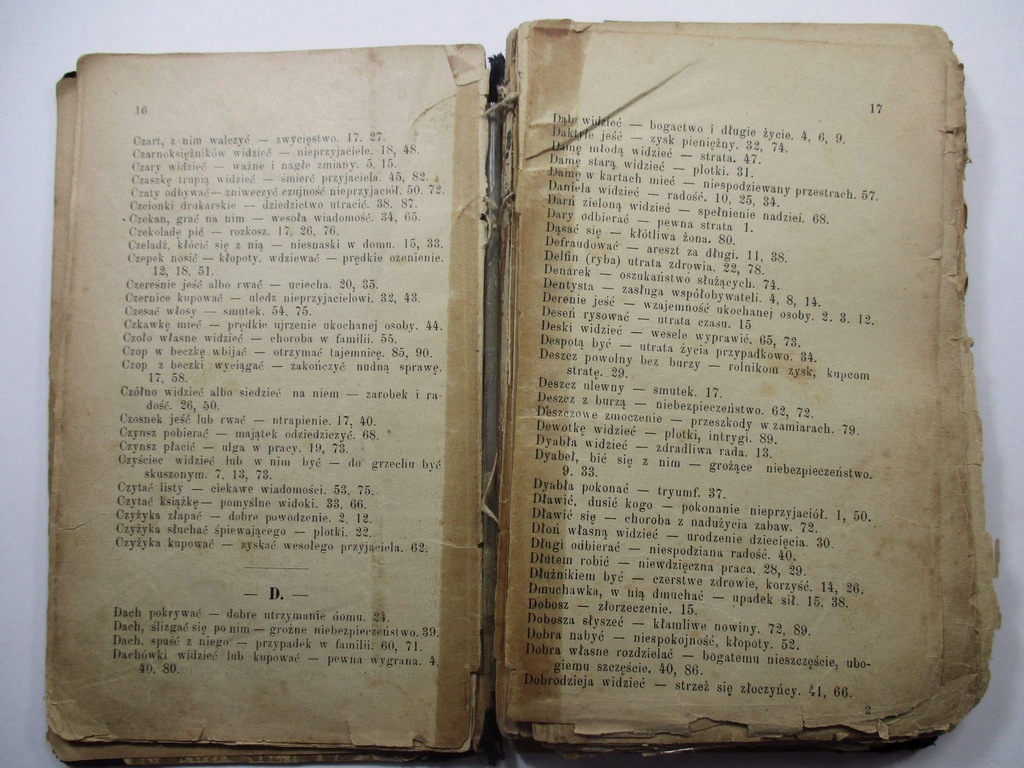 16
Czart, z nim walczyć — zwycięstwo. 17. 27.
Czarnoksiężników widzieć — nieprzyjaciele. 18, 48.
Czary widzieć — ważne i nagłe zmiany. 5, 15.
Czaszkę trupią widzieć — śmierć przyjaciela. 45, 82.
Czaty odbywać — zniweczyć czujność nieprzyjaciół. 50. 72.
Czcionki drukarskie — dziedzictwo utracić. 38. 87.
Czekan, grać na nim — wesoła wiadomość. 34, 65.
Czekoladę pić — rozkosz. 17, 26, 76.
Czeladź, kłócić się z nią — niesnaski w domu. 15, 33.
Czepek nosić — kłopoty, wdziewać — prędkie ożenienie.
12, 18, 51.
Czereśnie jeść albo rwać — uciecha. 20, 35.
Czernice kupować — uledz nieprzyjacielowi. 32, 43.
Czesać włosy — smutek. 54, 75.
Czkawkę mieć — prędkie ujrzenie ukochanej osoby. 44.
Czoło własne widzieć — choroba w familii. 55.
Czop w beczkę wbijać — otrzymać tajemnicę. 85, 90.
Czop z beczki wyciągać — zakończyć nudną sprawę.
17, 58.
Czółno widzieć albo siedzieć na niem — zarobek i ra-
dość. 26, 50.
Czosnek jeść lub rwać — utrapienie. 17, 40.
Czynsz pobierać — majątek odziedziczyć. 68.
Czynsz płacić — ulga w pracy. 19, 73.
Czyściec widzieć lub w nim być — do grzechu być
skuszonym. 7, 13, 73.
Czytać listy — ciekawe wiadomości. 53, 75.
Czytać książkę — pomyślne widoki. 33, 66.
Czyżyka złapać — dobre powodzenie. 2, 12.
Czyżyka słuchać śpiewającego — plotki. 22.
Czyżyka kupować — zyskać wesołego przyjaciela. 62.
— D. —
Dach pokrywać — dobre utrzymanie domu. 24.
Dach, ślizgać się po nim — groźne niebezpieczeństwo. 39.
Dach, spaść z niego — przypadek w familii. 60, 71.
Dachówki widzieć lub kupować — pewna wygrana. 4,
40, 80.
17
Dąb widzieć — bogactwo i długie życie. 4, 6, 9.
Daktyle jeść — zysk pieniężny. 32, 74.
Damę młodą widzieć — strata. 47.
Damę starą widzieć — plotki. 31.
Damę w kartach mieć — niespodziewany przestrach. 57.
Daniela widzieć — radość. 10, 25, 34.
Darń zieloną widzieć — spełnienie nadziei. 68.
Dary odbierać — pewna strata 1.
Dąsać się — kłótliwa żona. 80.
Defraudować — areszt za długi. 11, 38.
Delfin (ryba) utrata zdrowia. 22, 78.
Denarek — oszukaństwo służących. 74.
Dentysta — zasługa współobywateli. 4, 8, 14.
Derenie jeść — wzajemność ukochanej osoby. 2. 3. 12.
Deseń rysować — utrata czasu. 15
Deski widzieć — wesele wyprawić. 65, 73.
Despotą być — utrata życia przypadkowo. 34.
Deszcz powolny bez burzy — rolnikom zysk, kupcom
stratę. 29.
Deszcz ulewny — smutek. 17.
Deszcz z burzą — niebezpieczeństwo. 62, 72.
Deszczowe zmoczenie — przeszkody w zamiarach. 79.
Dewotkę widzieć — plotki, intrygi. 89.
Dyabła widzieć — zdradliwa rada. 13.
Dyabeł, bić się z nim — grożące niebezpieczeństwo.
9. 33.
Dyabła pokonać — tryumf. 37.
Dławić, dusić kogo — pokonanie nieprzyjaciół. 1, 50.
Dławić się — choroba z nadużycia zabaw. 72.
Dłoń własną widzieć — urodzenie dziecięcia. 30.
Długi odbierać — niespodziana radość. 40.
Dłutem robić — niewdzięczna praca. 28, 29.
Dłużnikiem być — czerstwe zdrowie, korzyść. 14, 26.
Dmuchawka, w nią dmuchać — upadek sił. 15, 38.
Dobosz — złorzeczenie. 15.
Dobosza słyszeć — kłamliwe nowiny. 72, 89.
Dobra nabyć — niespokojność, kłopoty. 52.
Dobra własne rozdzielać — bogatemu nieszczęście, ubo-
giemu szczęście. 40, 86.
Dobrodzieja widzieć — strzeż się złoczyńcy. 41, 66.
2